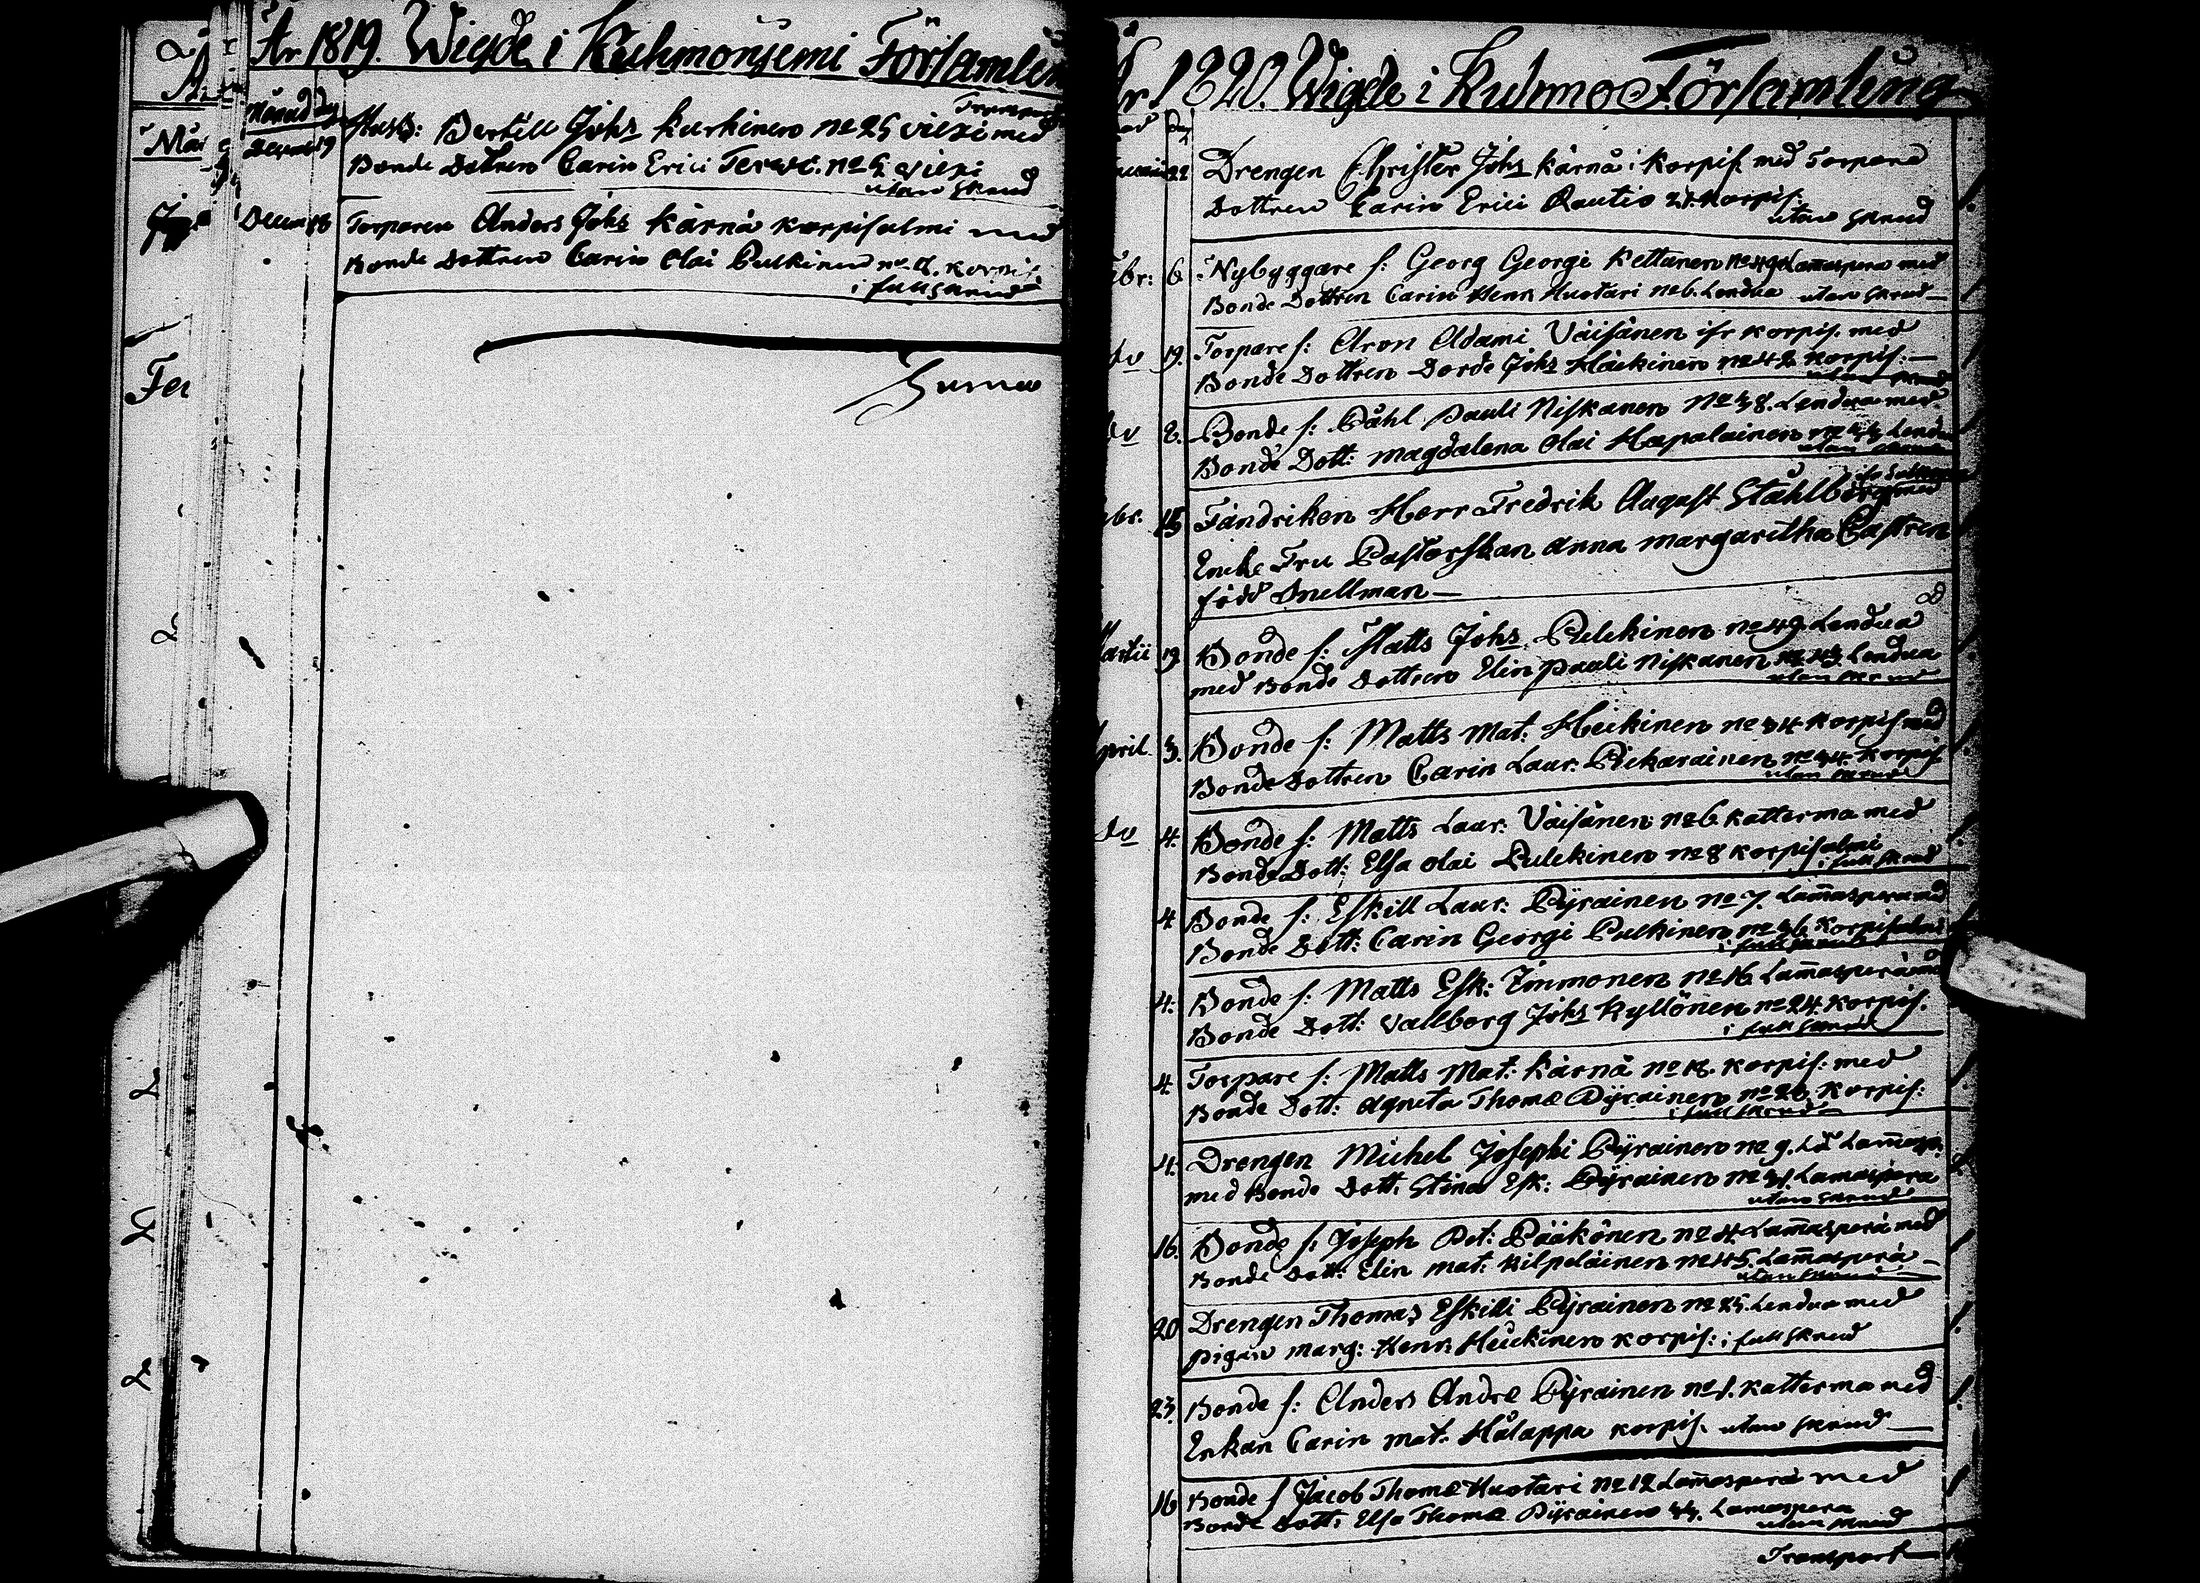 År 1819. Wigde i Kuhmonjemi Församlin
Månad dag
Transport
Decemb 19 Husb: Bertill Johs Kurkinen No 25 Viexi med
Bonde Dottren Carin Erici Tervo. No 5 Viexi
utan skrud
Decem 28 Torparen Anders Johs Kärnä Korpisalmi med
Bonde Dottren Carin Olai Pulkinen No Korpis.
i full skrud
Summa
Mår
Fer
År 1820. Wigde i Kuhmo Församling
22 Drengen Christer Johs Kärnä i Korpis. med Torpare
Dottren Carin Erici Rautio 21 Korpis.
utan skrud
Febr: 6. Nybyggare s: Georg Georgi Kettunen No 49 Lammasperä med
Bonde Dottren Carin Henr. Huotari No 6. Lendua utan skrud
do 19. Torpare s: Aron Adami Väisänen ifr Korpis. med
Bonde Dottren Dorde Johs Häikinen No 42 Korpis.
utan skrud
do 2. Bonde s: Påhl Pauli Niskanen No 38. Lendua med
Bonde Dott: Magdalena Olai Hapalainen No 33 Lendua
utan skrud
15 Fändriken Herr Fredrik August Ståhlberg med
Encke Fru Pastorskan Anna Margaritha Castren
född Snellman
Martii 19 Bonde s: Matts Johs Pulckinen No 49. Lendua
med Bonde Dottren Elin Pauli Niskanen No Lendua
utan skrud
April 3. Bonde s: Matts Mat: Heikinen No 34 Korpis med
Bonde Dottren Carin Laur: Pickarainen No 34. Korpis
utan skrud
do 4. Bonde s: Matts Laur. Väisänen No 6 Katterma med
Bonde Dott: Elsa Olai Pulckinen No 8 Korpisalmi
i full skrud
4 Bonde s: Eskill Laur: Pyrainen No 7. Lammasperä med
Bonde Dott: Carin Georgi Pulkinen No 36 Korpisalmi
i full skrud
4. Bonde s: Matts Esk: Immonen No 16 Lammasperä med
Bonde Dott: Vallborg Johs Kyllönen No 24 Korpis.
i full skrud
4. Torpare s: Matts Mat: Kärnä No 18. Korpis. med
Bonde Dott: Agneta Thomæ Pyrainen No 20 Korpis:
i full skrud
4. Drengen Michel Josephi Pyrainen No 9. Lammasp.
med Bonde Dott: Stina Esk: Pyrainen No 31. Lamasperä
utan skrud
16. Bonde s: Joseph Pet: Pääkönen No 4 Lammasperä med
Bonde Dott: Elin Mat: Kilpeläinen No 45. Lammasperä
utan skrud
20 Drengen Thomas Eskilli Pyrainen No 25. Lendua med
Pigan Marg: Henr. Heickinen Korpis: i full skrud
23. Bonde s: Anders Andræ Pyrainen No 1. Katterma med
Enkan Carin Mat. Hålappa Korpis. utan skrud
16 Bonde s Jacob Thomæ Huotari No 12 Lammasperä med
Bonde Dott: Elsa Thomæ Pyrainen 33. Lamaspera
utan skrud
Transport